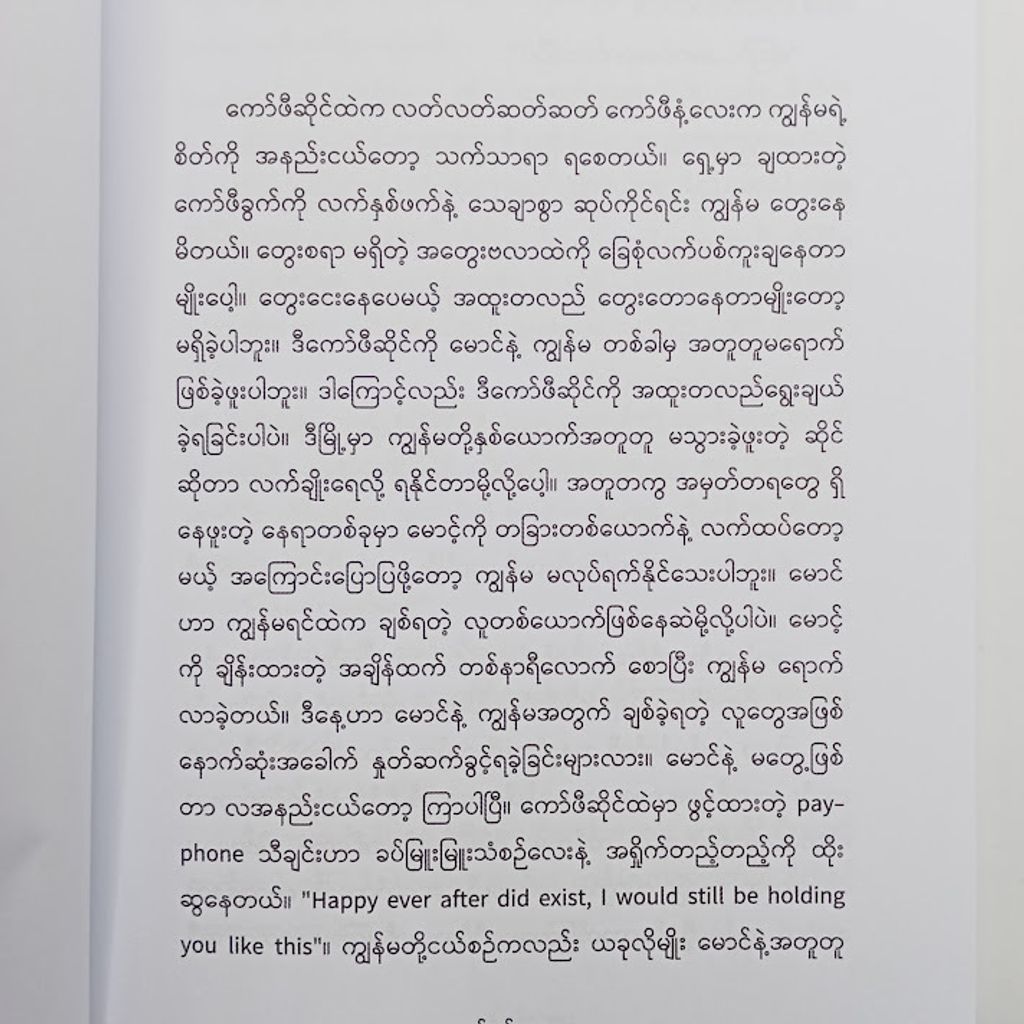 ကော်ဖီဆိုင်ထဲက လတ်လတ်ဆတ်ဆတ် ကော်ဖီနံ့လေးက ကျွန်မရဲ့
စိတ်ကို အနည်းငယ်တော့ သက်သာရာ ရစေတယ်။ ရှေ့မှာ ချထားတဲ့
ကော်ဖီခွက်ကို လက်နှစ်ဖက်နဲ့ သေချာစွာ ဆုပ်ကိုင်ရင်း ကျွန်မ တွေးနေ
မိတယ်။ တွေးစရာ မရှိတဲ့ အတွေးဗလာထဲကို ခြေစုံလက်ပစ်ကူးချနေတာ
မျိုးပေါ့။ တွေးငေးနေပေမယ့် အထူးတလည် တွေးတောနေတာမျိုးတော့
မရှိခဲ့ပါဘူး။ ဒီကော်ဖီဆိုင်ကို မောင်နဲ့ ကျွန်မ တစ်ခါမှ အတူတူမရောက်
ဖြစ်ခဲ့ဖူးပါဘူး။ ဒါကြောင့်လည်း ဒီကော်ဖီဆိုင်ကို အထူးတလည်ရွေးချယ်
ခဲ့ရခြင်းပါပဲ။ ဒီမြို့မှာ ကျွန်မတို့နှစ်ယောက်အတူတူ မသွားခဲ့ဖူးတဲ့ ဆိုင်
ဆိုတာ လက်ချိုးရေလို့ ရနိုင်တာမို့လို့ပေါ့။ အတူတကွ အမှတ်တရတွေ ရှိ
နေဖူးတဲ့ နေရာတစ်ခုမှာ မောင့်ကို တခြားတစ်ယောက်နဲ့ လက်ထပ်တော့
မယ့် အကြောင်းပြောပြဖို့တော့ ကျွန်မ မလုပ်ရက်နိုင်သေးပါဘူး။ မောင်
ဟာ ကျွန်မရင်ထဲက ချစ်ရတဲ့ လူတစ်ယောက်ဖြစ်နေဆဲမို့လို့ပါပဲ။ မောင့်
ကို ချိန်းထားတဲ့ အချိန်ထက် တစ်နာရီလောက် စောပြီး ကျွန်မ ရောက်
လာခဲ့တယ်။ ဒီနေ့ဟာ မောင်နဲ့ ကျွန်မအတွက် ချစ်ခဲ့ရတဲ့ လူတွေအဖြစ်
နောက်ဆုံးအခေါက် နှုတ်ဆက်ခွင့်ရခဲ့ခြင်းများလား။ မောင်နဲ့ မတွေ့ဖြစ်
တာ လအနည်းငယ်တော့ ကြာပါပြီ။ ကော်ဖီဆိုင်ထဲမှာ ဖွင့်ထားတဲ့ pay-
phone သီချင်းဟာ ခပ်မြူးမြူးသံစဉ်လေးနဲ့ အရှိုက်တည့်တည့်ကို ထိုး
ဆွနေတယ်။ "Happy ever after did exist, I would still be holding
you like this"။ ကျွန်မတို့ငယ်စဉ်ကလည်း ယခုလိုမျိုး မောင်နဲ့အတူတူ